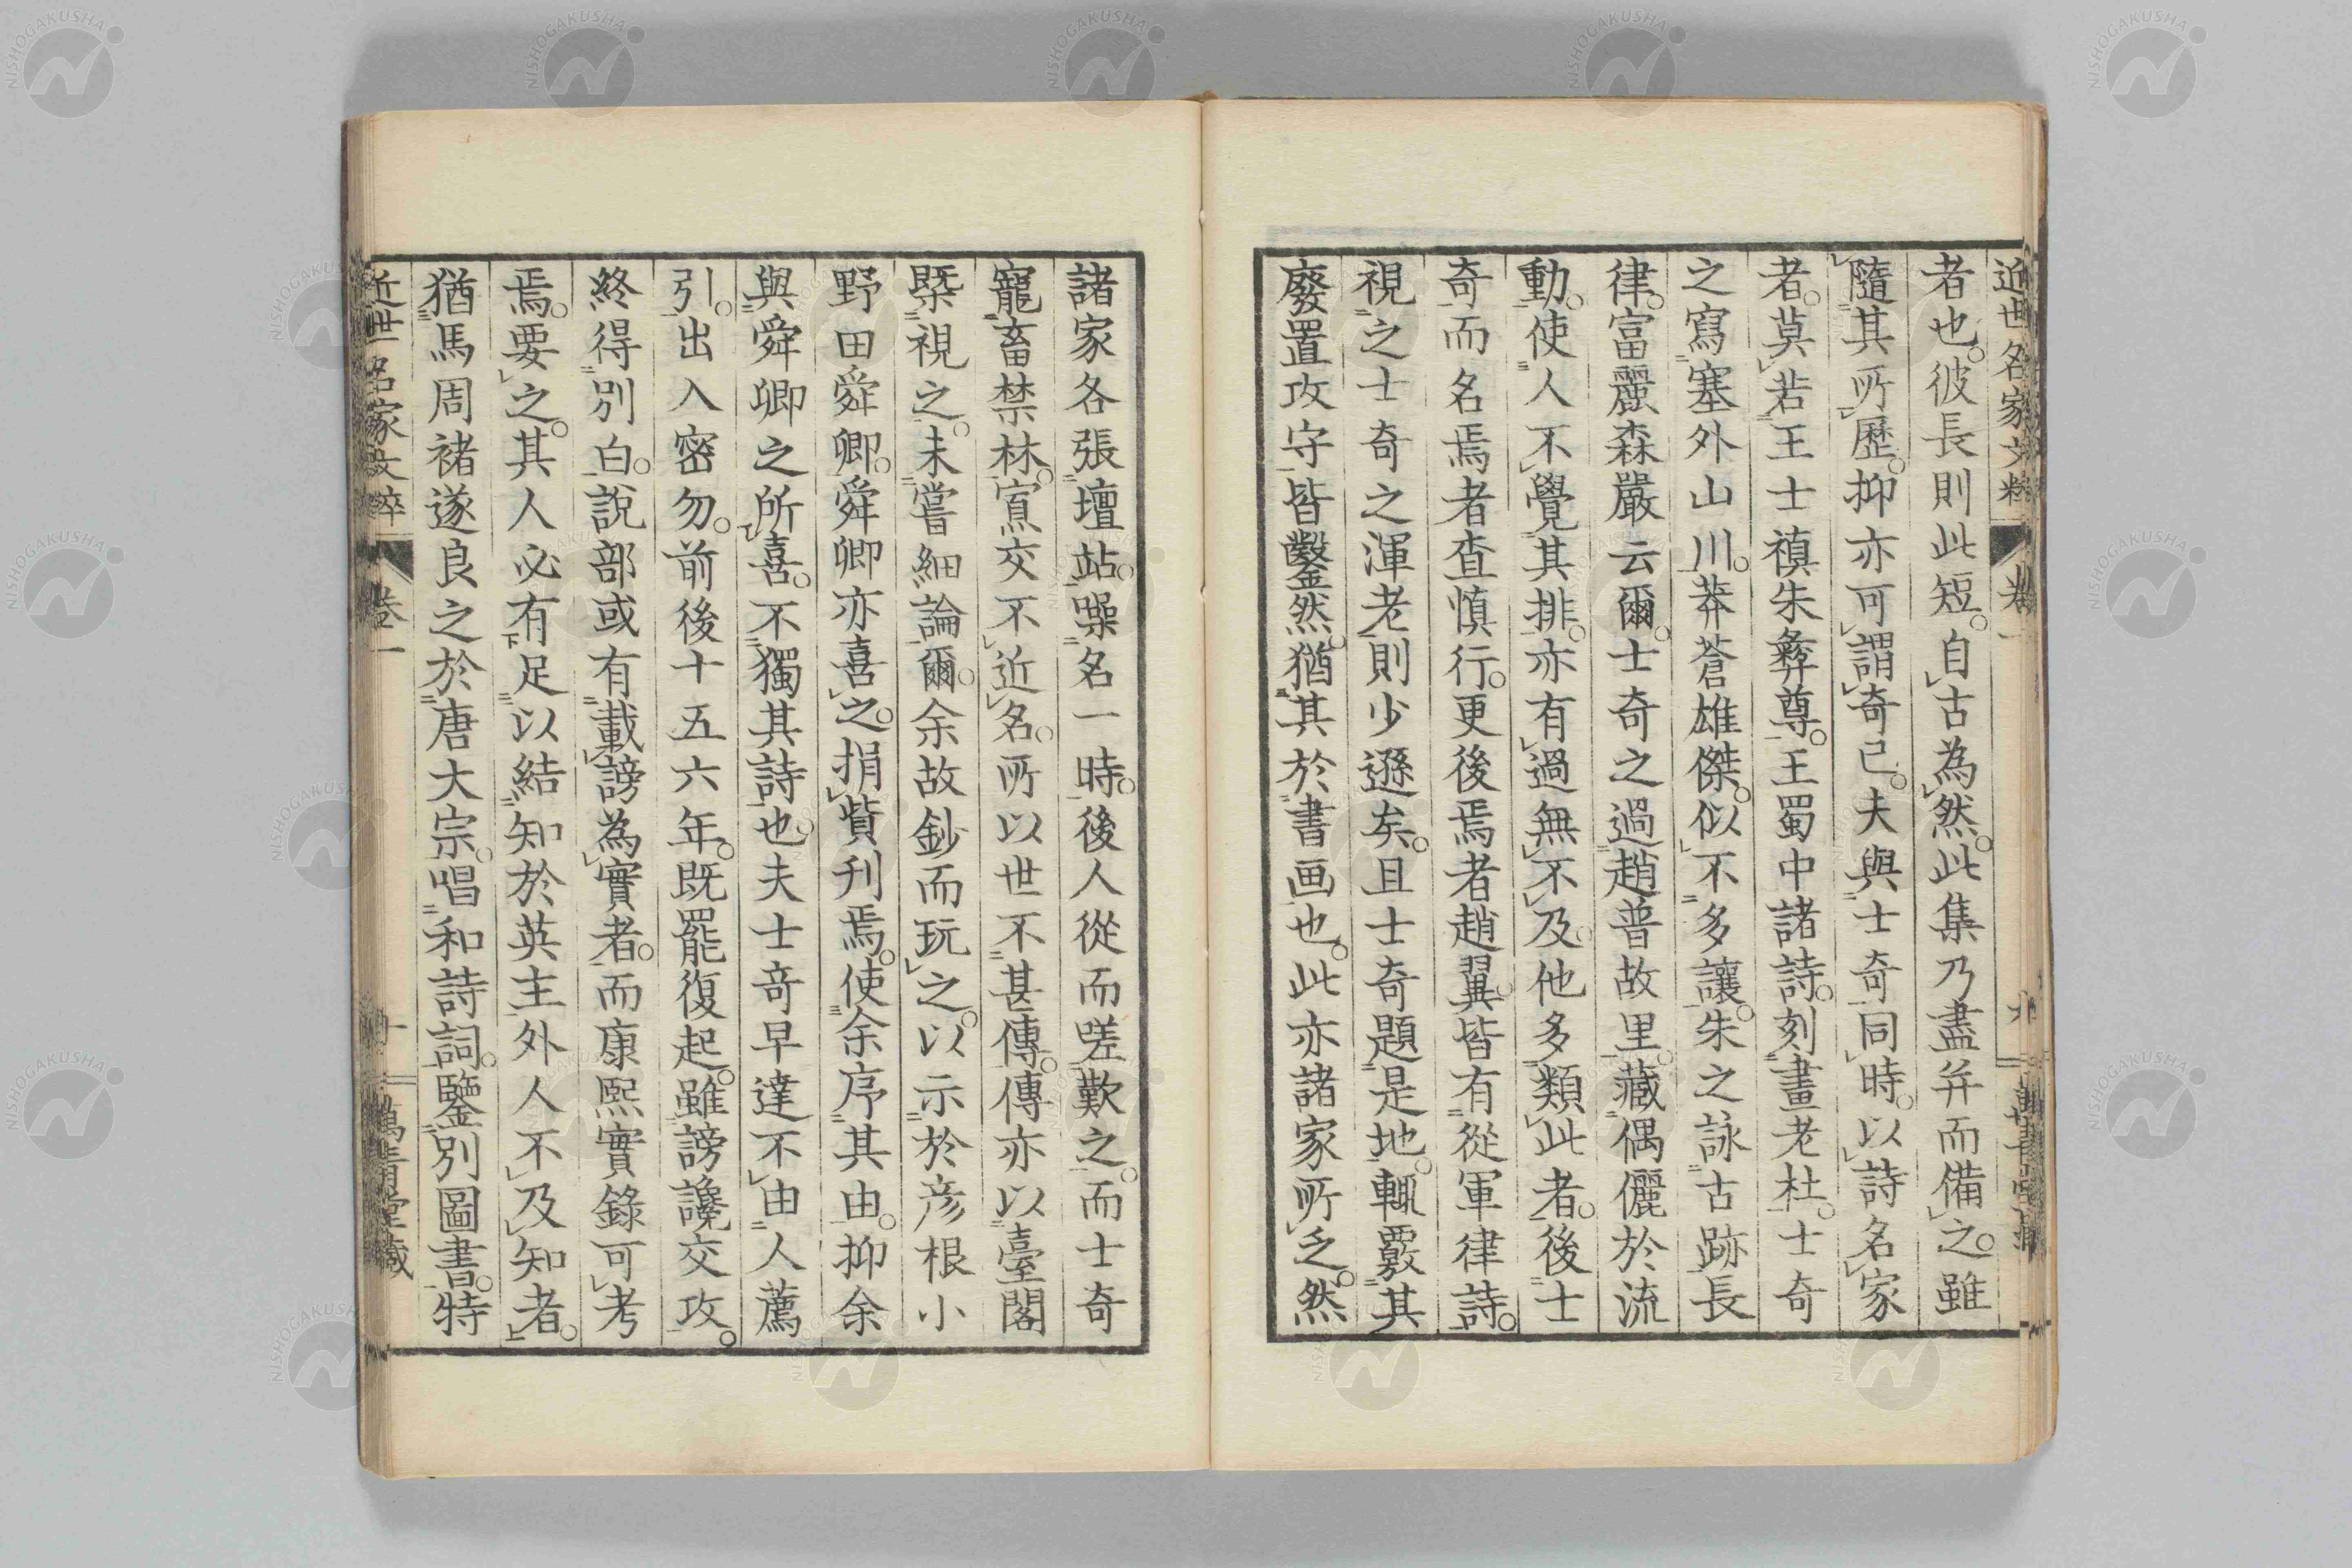 近世名家文粹 卷一
者也。彼長則此短。自古為然。此集乃盡并而備之。雖
隨其所歷。抑亦可謂奇已。夫與士奇同時。以詩名家
者。莫若王士禛朱彝尊。王蜀中諸詩。刻畫老杜。士奇
之寫塞外山川。莽蒼雄傑。似不多讓。朱之詠古跡長
律。富麗森嚴云爾。士奇之過趙普故里。藏偶儷於流
動。使人不覺其排。亦有過無不及。他多類此者。後士
奇而名焉者查慎行。更後焉者趙翼。皆有從軍律詩。
視之士奇之渾老。則少遜矣。且士奇題是地。輒覈其
廢置攻守。皆鑿然。猶其於書画也。此亦諸家所乏。然
諸家各張壇坫。噪名一時。後人從而嗟歎之。而士奇
寵畜禁林。寡交不近名。所以世不甚傳。傳亦以臺閣
槩視之。未嘗細論爾。余故鈔而玩之。以示於彦根小
野田舜卿。舜卿亦喜之。捐貲刊焉。使余序其由。抑余
與舜卿之所喜。不獨其詩也。夫士奇早達不由人薦
引。出入密勿。前後十五六年。既罷復起。雖謗讒交攻。
終得別白。說部或有載謗為實者。而康熙實錄可考
焉。要之。其人必有足以結知於英主。外人不及知者。
猶馬周褚遂良之於唐大宗。唱和詩詞。鑒別圖書。特
近世名家文粹 卷一 十 萬青堂藏